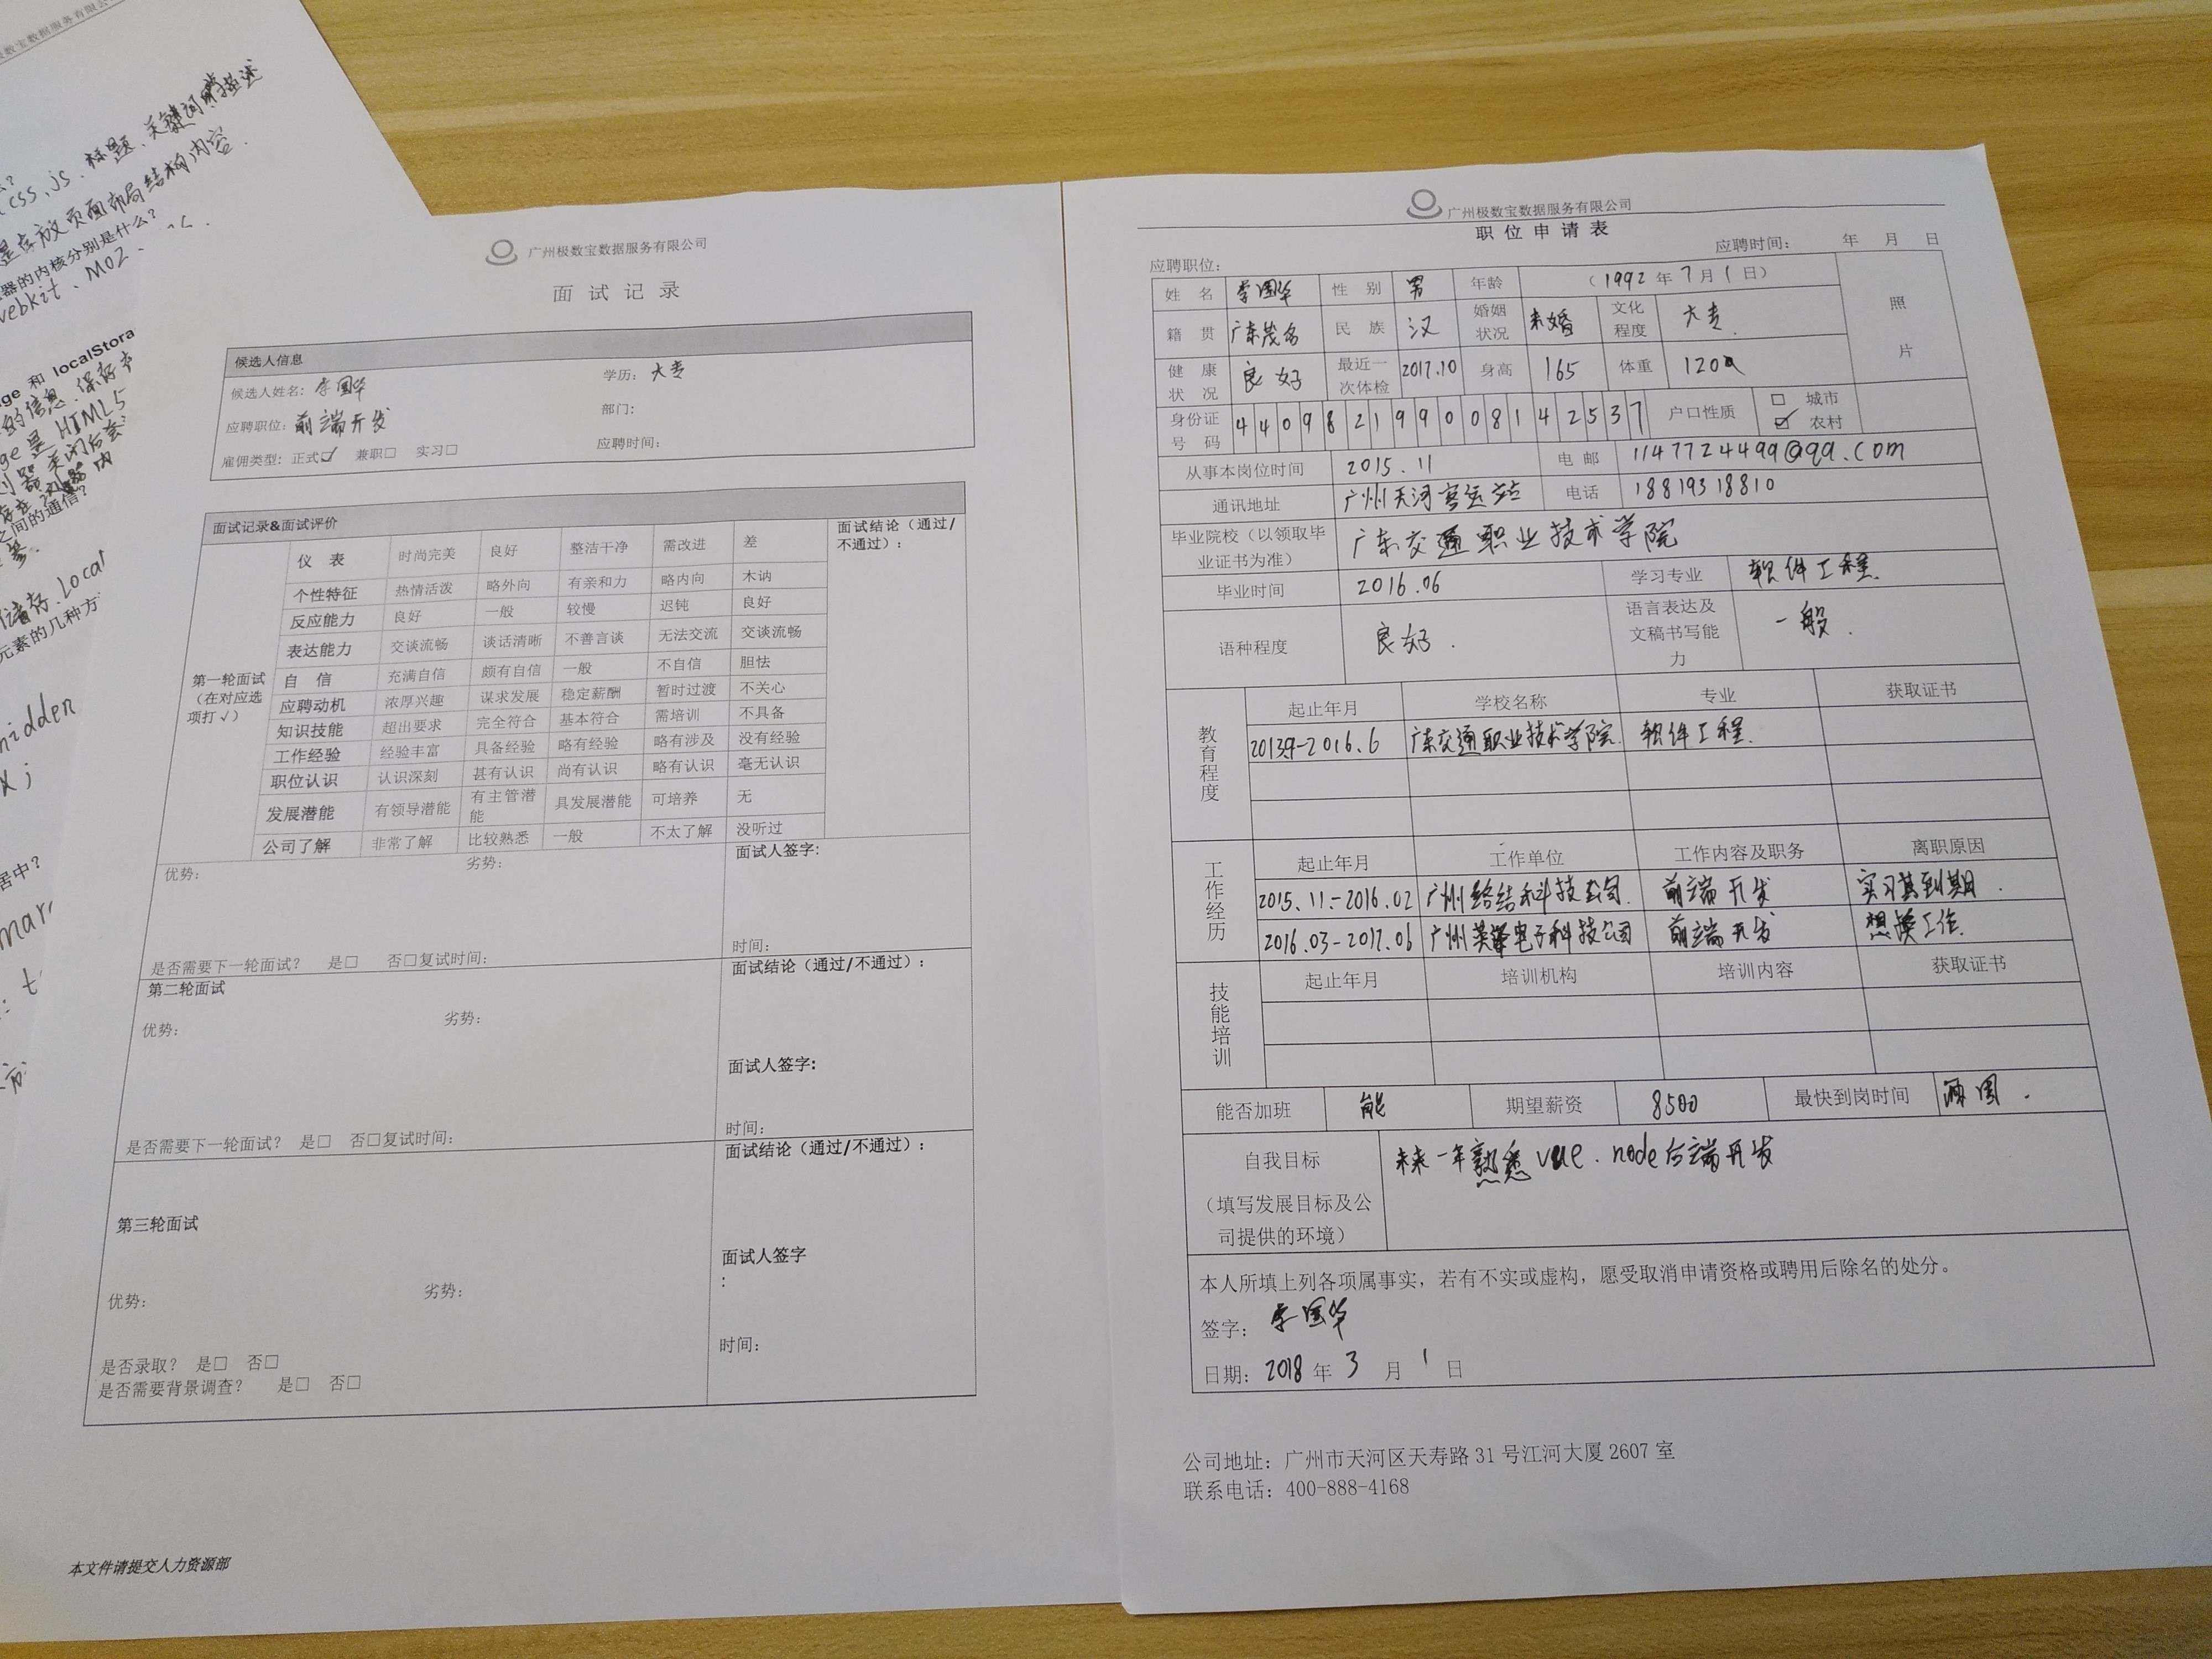 极数宝数据服务有限公司
css、js、标题、关键词、描述
是存放页面布局结构内容.
器的内核分别是什么?
webkit、MOZ、
ge 和 localStora
的信息.保存在
ge 是 HTML5
之间的通信?
储存.local
元素的几种方
hidden
居中?
广州极数宝数据服务有限公司
面试记录
候选人信息
候选人姓名: 李国华 学历: 大专
应聘职位: 前端开发 部门:
雇佣类型: 正式☑ 兼职□ 实习□ 应聘时间:
面试记录&面试评价
第一轮面试(在对应选项打√)
仪 表 时尚完美 良好 整洁干净 需改进 差 面试结论(通过/不通过):
个性特征 热情活泼 略外向 有亲和力 略内向 木讷
反应能力 良好 一般 较慢 迟钝 良好
表达能力 交谈流畅 谈话清晰 不善言谈 无法交流 交谈流畅
自 信 充满自信 颇有自信 一般 不自信 胆怯
应聘动机 浓厚兴趣 谋求发展 稳定薪酬 暂时过渡 不关心
知识技能 超出要求 完全符合 基本符合 需培训 不具备
工作经验 经验丰富 具备经验 略有经验 略有涉及 没有经验
职位认识 认识深刻 甚有认识 尚有认识 略有认识 毫无认识
发展潜能 有领导潜能 有主管潜能 具发展潜能 可培养 无
公司了解 非常了解 比较熟悉 一般 不太了解 没听过
优势: 劣势: 面试人签字:
时间:
是否需要下一轮面试? 是□ 否□复试时间:
第二轮面试 面试结论(通过/不通过):
优势: 劣势:
面试人签字:
时间:
是否需要下一轮面试? 是□ 否□复试时间:
面试结论(通过/不通过):
第三轮面试
面试人签字
:
优势: 劣势:
时间:
是否录取? 是□ 否□
是否需要背景调查? 是□ 否□
本文件请提交人力资源部
广州极数宝数据服务有限公司
职位申请表
应聘职位: 应聘时间: 年 月 日
姓 名 李国华 性 别 男 年龄 (1992年7月1日) 照片
籍 贯 广东茂名 民 族 汉 婚姻状况 未婚 文化程度 大专.
健康状况 良好 最近一次体检 2017.10 身高 165 体重 120
身份证号码 440982199008142537 户口性质 □ 城市 ☑ 农村
从事本岗位时间 2015.11 电 邮 1147724499@qq.com
通讯地址 广州天河客运站 电话 18819318810
毕业院校(以领取毕业证书为准) 广东交通职业技术学院
毕业时间 2016.06 学习专业 软件工程.
语种程度 良好. 语言表达及文稿书写能力 一般.
教育程度 起止年月 学校名称 专业 获取证书
2013.9-2016.6 广东交通职业技术学院. 软件工程.
工作经历 起止年月 工作单位 工作内容及职务 离职原因
2015.11-2016.02 广州络结科技公司. 前端开发 实习期到期.
2016.03-2017.06 广州英 电子科技公司 前端开发 想换工作.
技能培训 起止年月 培训机构 培训内容 获取证书
能否加班 能 期望薪资 8500 最快到岗时间 两周.
自我目标 未来一年熟悉vue.node后端开发
(填写发展目标及公司提供的环境)
本人所填上列各项属事实,若有不实或虚构,愿受取消申请资格或聘用后除名的处分。
签字: 李国华
日期: 2018年3月1日
公司地址: 广州市天河区天寿路31号江河大厦2607室
联系电话: 400-888-4168